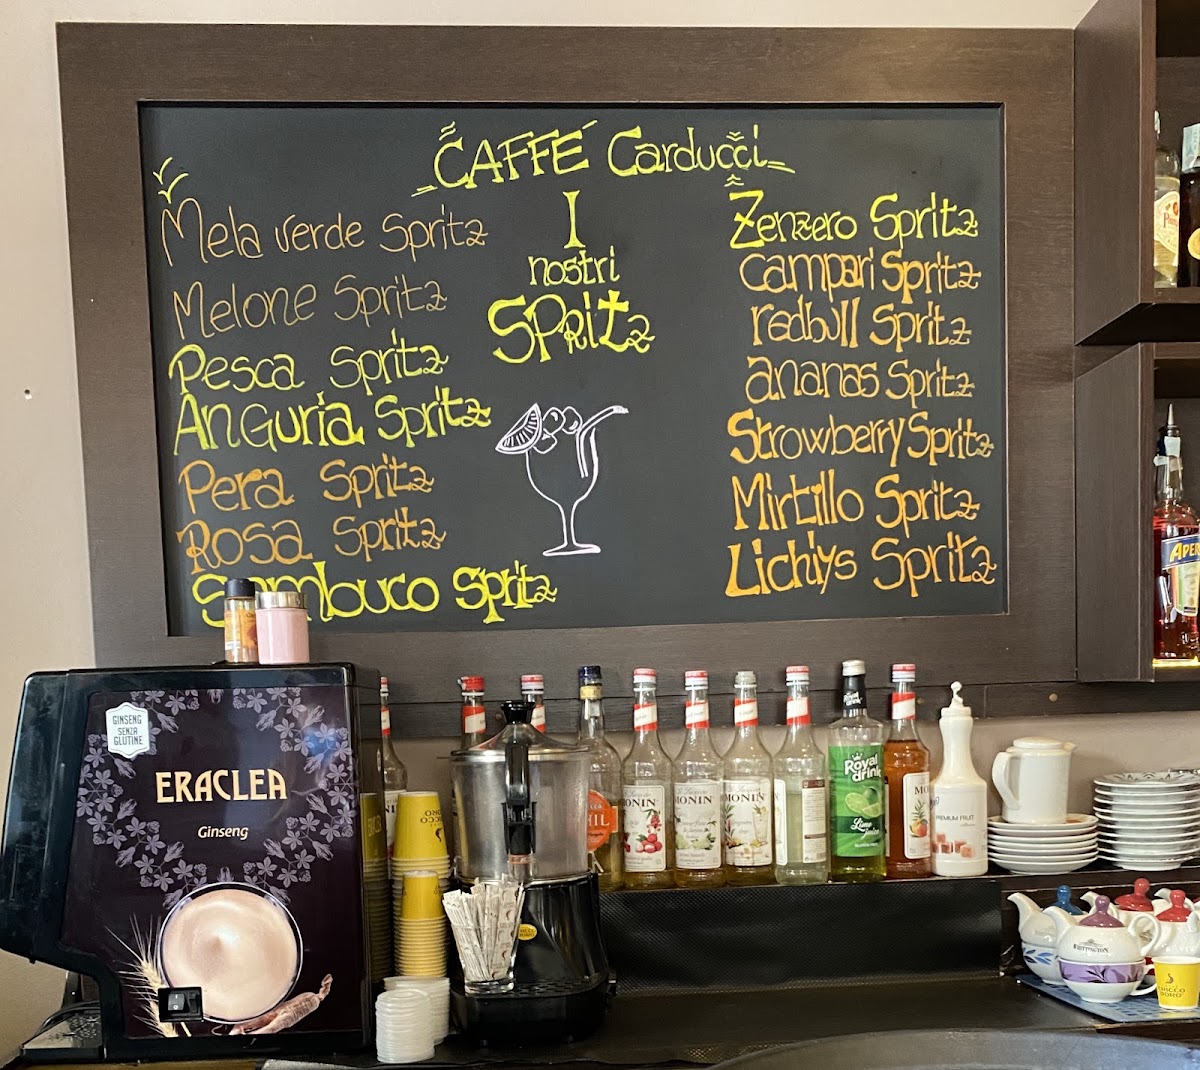 CAFFÉ Carducci
I
nostri
SPRitz
Mela verde Spritz
Melone Spritz
Pesca Spritz
Anguria Spritz
Pera Spritz
Rosa Spritz
Sambuco Spritz
Zenzero Spritz
campari Spritz
redbull Spritz
ananas Spritz
Strowberry Spritz
Mirtillo Spritz
Lichiys Spritz
GINSENG
SENZA
GLUTINE
ERACLEA
Ginseng
MONIN
MONIN
MONIN
Royal
drink
Lime
juice
PREMIUM FRUIT
WHITTINGTON
CHICCO
D'ORO
APER